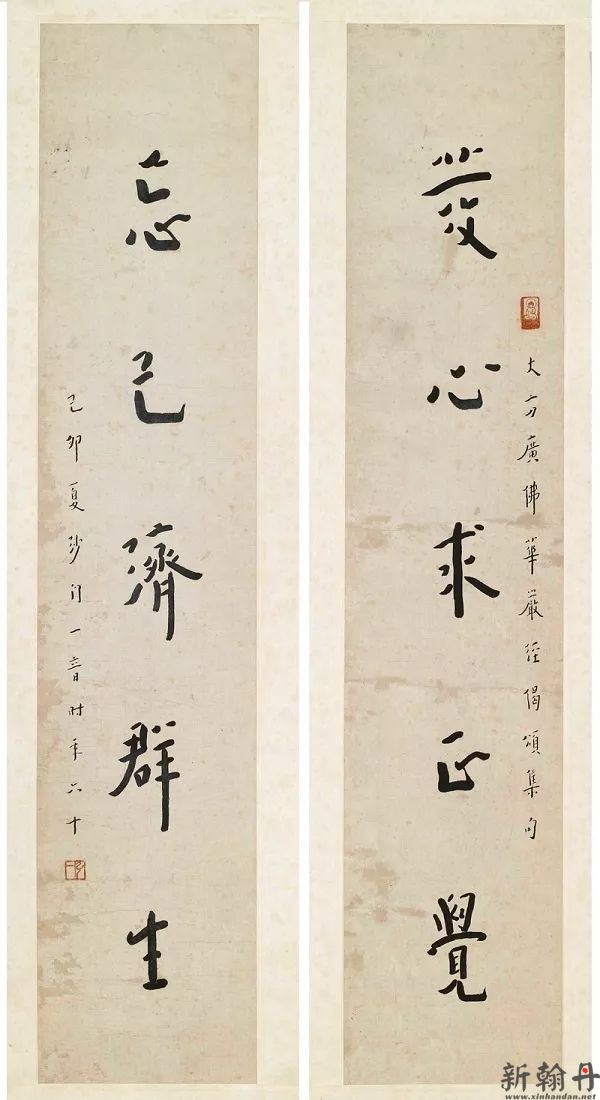 大方廣佛華嚴經偈頌集句
發心求正覺
忘己濟群生
己卯夏沙門一音時年六十
新翰丹
www.xinhandan.net